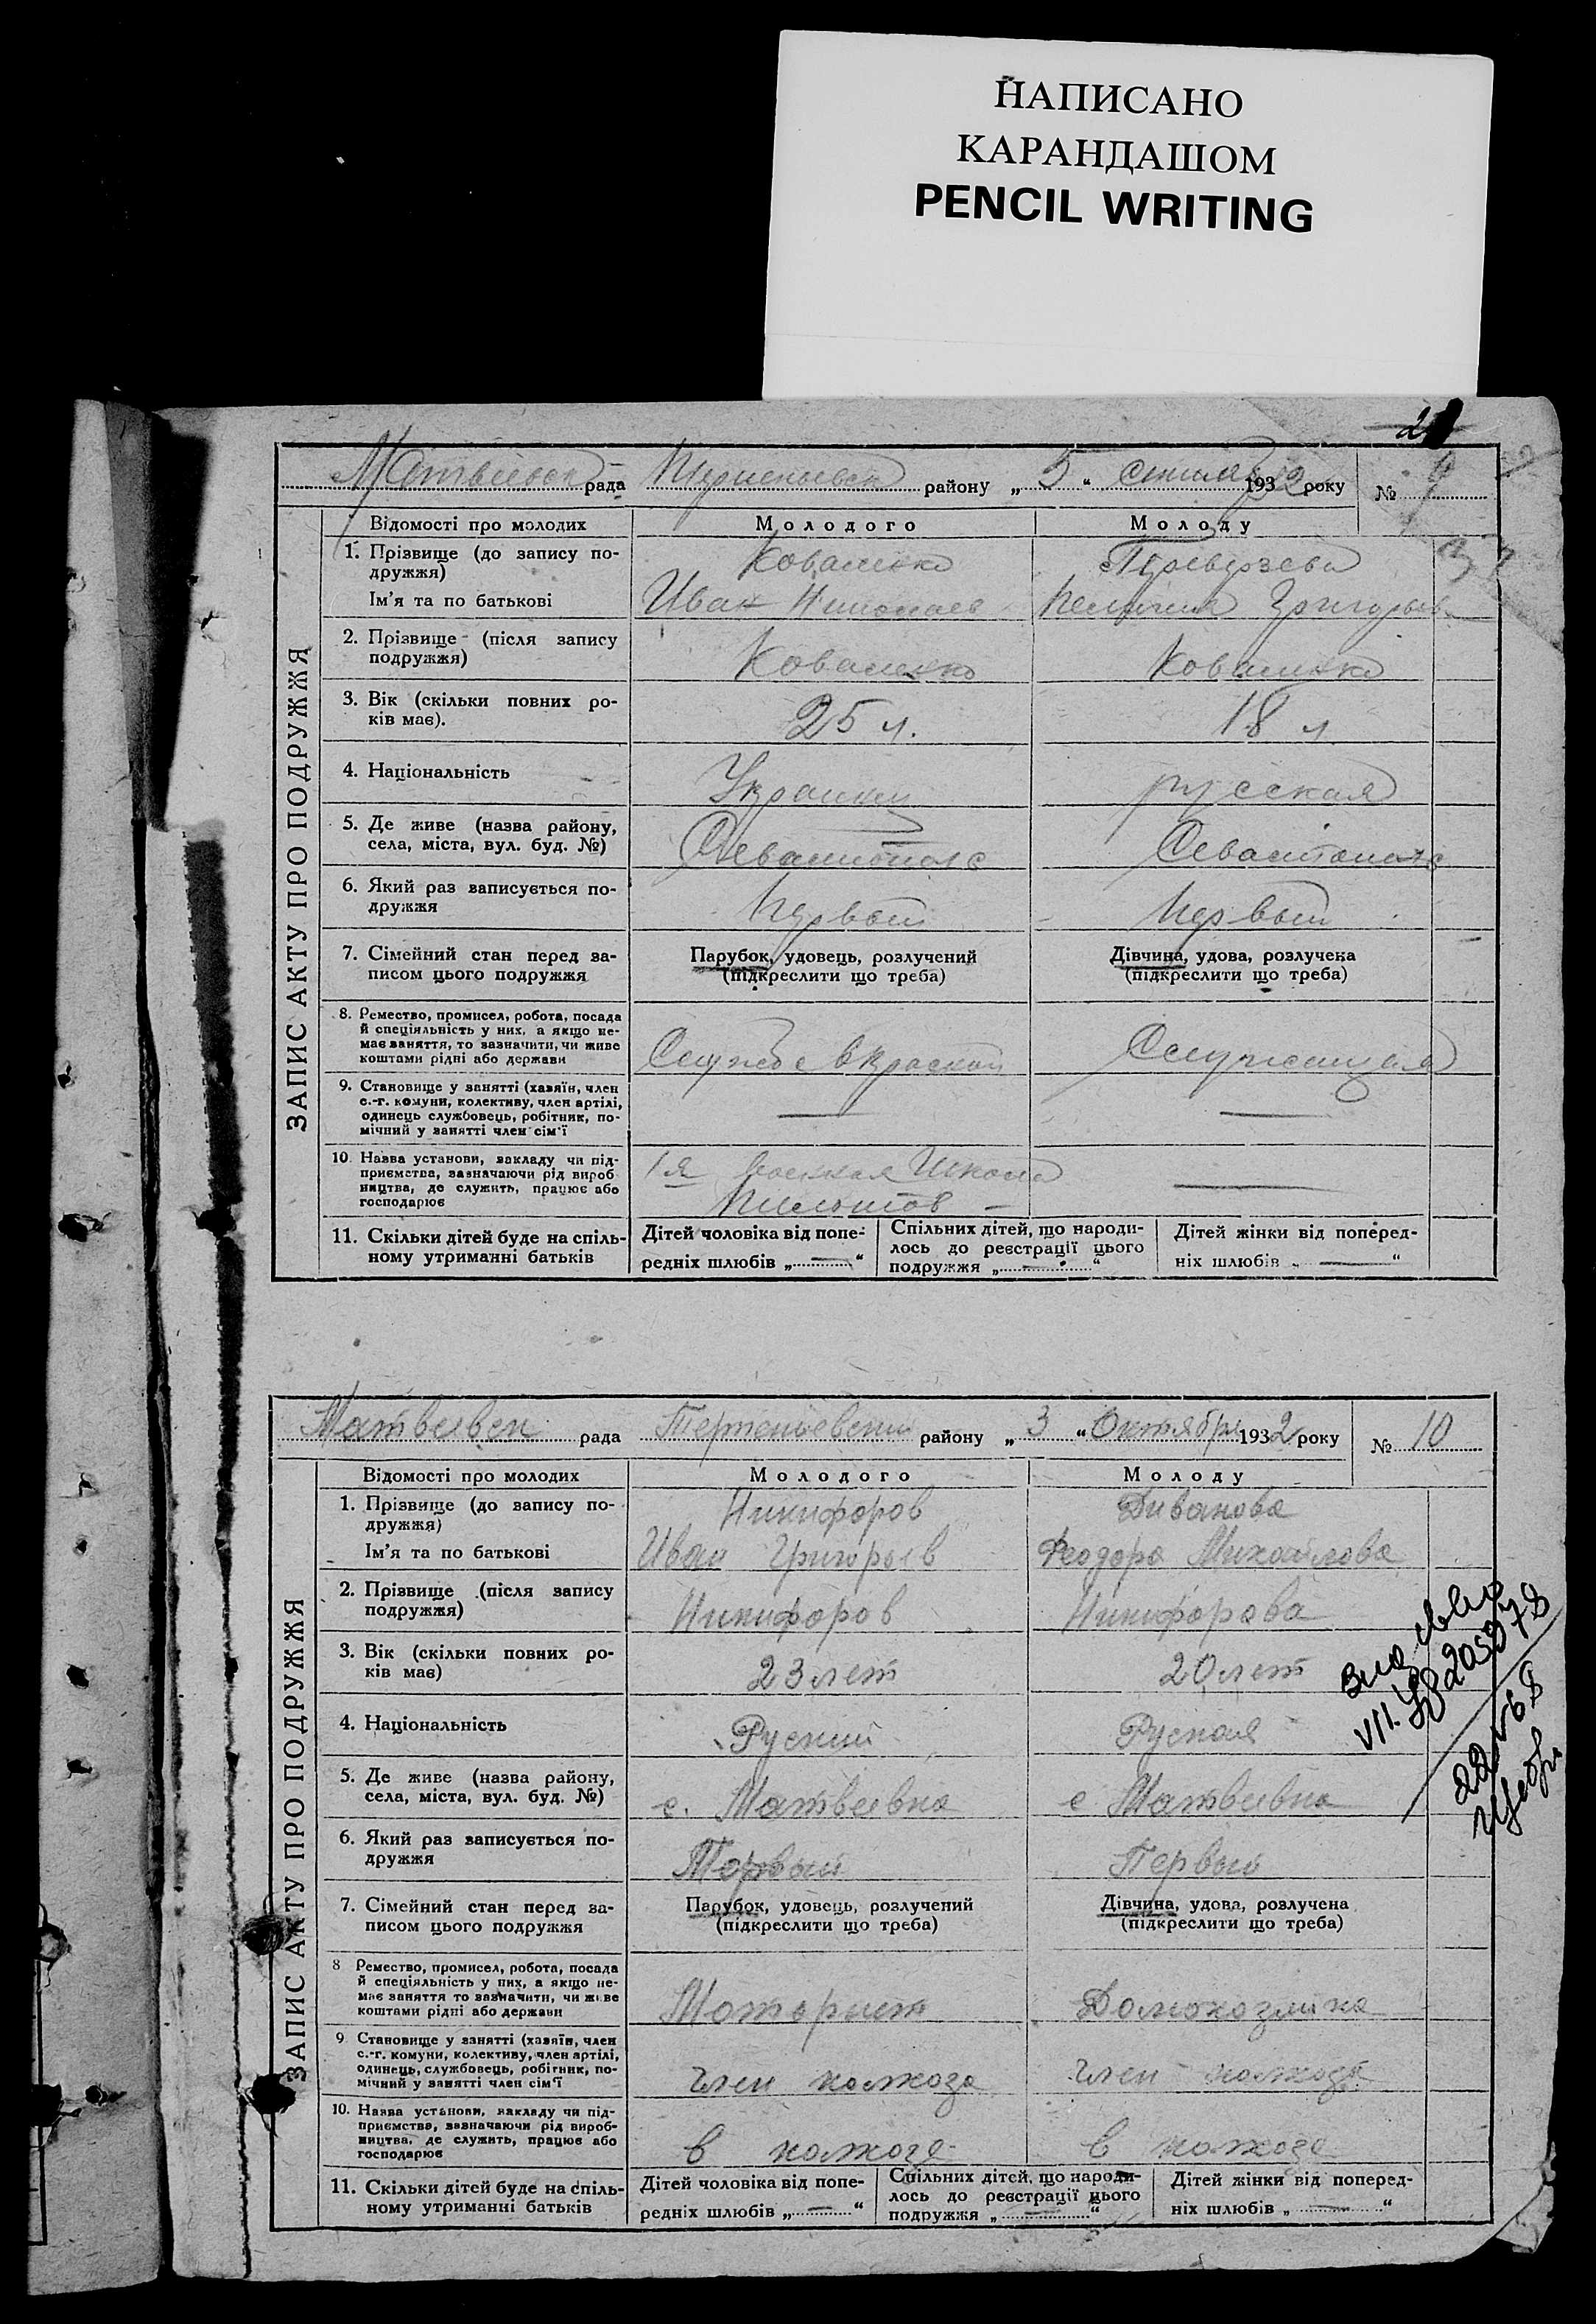 НАПИСАНО
КАРАНДАШОМ
PENCIL WRITING
рада району „ 5 “ 1932 року № 9
ЗАПИС АКТУ ПРО ПОДРУЖЖЯ
Відомості про молодих Молодого Молоду
1. Прізвище (до запису по-
дружжя) Коваленко Переверзева
Ім'я та по батькові Иван Николаев Григорьев
2. Прізвище (після запису
подружжя) Коваленко Коваленко
3. Вік (скільки повних ро-
ків має). 25 л. 18 л
4. Національність Украинец русская
5. Де живе (назва району,
села, міста, вул. буд. №) Севастополь Севастополь
6. Який раз записується по-
дружжя Первый Первый
7. Сімейний стан перед за-
писом цього подружжя
Парубок, удовець, розлучений
(підкреслити що треба)
Дівчина, удова, розлучена
(підкреслити що треба)
8. Ремество, промисел, робота, посада
й спеціяльність у них, а якщо не-
має заняття, то зазначити, чи живе
коштами рідні або держави
Служащая
9. Становище у занятті (хазяїн, член
с.-г. комуни, колективу, член артілі,
одинець службовець, робітник, по-
мічний у занятті член сім'ї
10. Назва установи, закладу чи під-
приємства, зазначаючи рід вироб
ництва, де служить, працює або
господарює
1я Военная Школа
Пилотов —
11. Скільки дітей буде на спіль-
ному утриманні батьків
Дітей чоловіка від попе-
редніх шлюбів „ — “
Спільних дітей, що народи-
лось до реєстрації цього
подружжя „ — “
Дітей жінки від поперед-
ніх шлюбів „ — “
Матвеевск рада району „ 3 “ Октября 1932 року № 10
ЗАПИС АКТУ ПРО ПОДРУЖЖЯ
Відомості про молодих Молодого Молоду
1. Прізвище (до запису по-
дружжя) Никифоров Диванова
Ім'я та по батькові Иван Григорьев Феодора Михайлова
2. Прізвище (після запису
подружжя) Никифоров Никифорова
3. Вік (скільки повних ро-
ків має) 23 лет 20 лет
4. Національність Руский Руская
5. Де живе (назва району,
села, міста, вул. буд. №) с. Матвеевка с Матвеевка
6. Який раз записується по-
дружжя Первый Первый
7. Сімейний стан перед за-
писом цього подружжя
Парубок, удовець, розлучений
(підкреслити що треба)
Дівчина, удова, розлучена
(підкреслити що треба)
8 Ремество, промисел, робота, посада
й спеціяльність у них, а якщо не-
має заняття то зазначити, чи живе
коштами рідні або держави
Моторист Домохозяйка
9 Становище у занятті (хазяїн, член
с.-г. комуни, колективу, член артілі,
одинець, службовець, робітник, по-
мічний у занятті член сім'ї
член колхоза член колхоза
10. Назва установи, закладу чи під-
приємства, зазначаючи рід вироб-
ництва, де служить, працює або
господарює
в колхозе в колхозе
11. Скільки дітей буде на спіль-
ному утриманні батьків
Дітей чоловіка від попе-
редніх шлюбів „ — “
Спільних дітей, що народи-
лось до реєстрації цього
подружжя „ — “
Дітей жінки від поперед-
ніх шлюбів „ — “